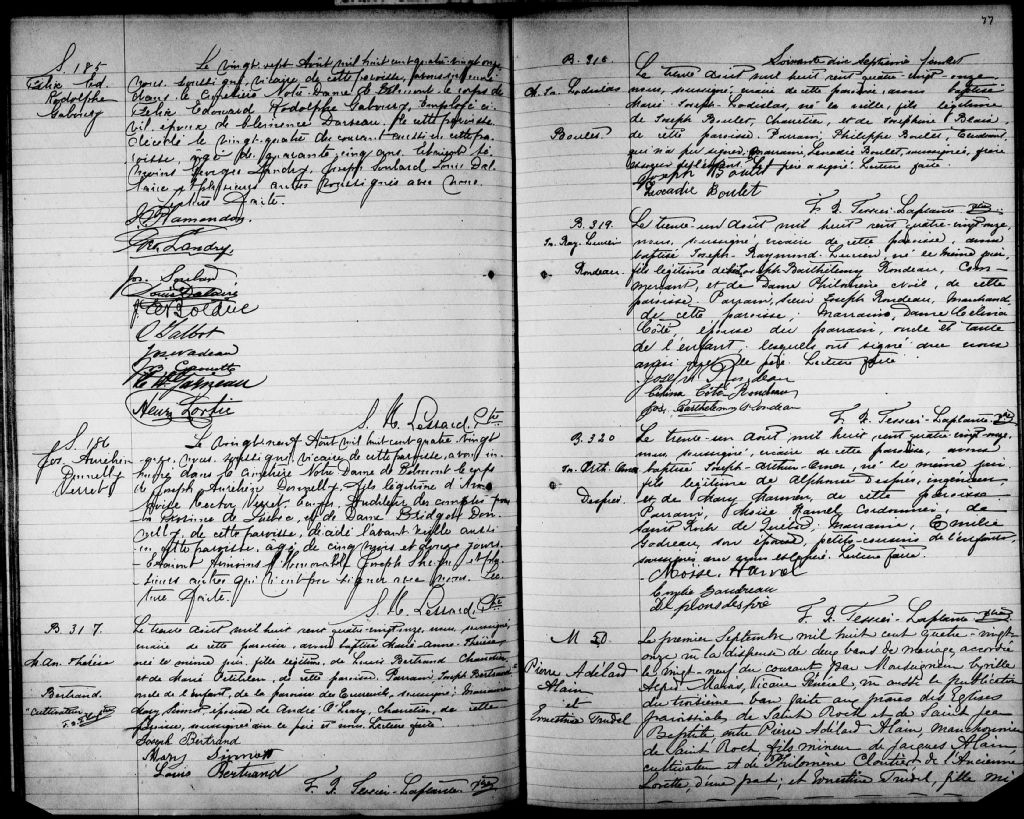 S. 185
Félix Ed.
Rodolphe
Gaboury
Le vingt-sept Août mil huit cent quatre-vingt-onze
nous soussigné, vicaire de cette paroisse, avons inhumé
dans le cimetière Notre-Dame de Belmont le corps de
Félix Edouard Rodolphe Gaboury, Employé ci-
vil, époux de Clémence Darveau, de cette paroisse,
décédé le vingt-quatre du courant aussi en cette pa-
roisse, agé de quarante cinq ans. Etaient té-
moins Georges Landry, Joseph Soulard Louis Dal-
laire et plusieurs autres soussignés avec nous.
Lecture faite.
Hamondon
Landry
Jos. Soulard
Louis Dallaire
Bolduc
O Talbot
Jos. Nadeau
Garneau
Henri Lortie
S. H. Lessard, Ptre
S. 186
Jos. Aurélien
Donnelly
Verret
Le vingt-neuf Août mil huit cent quatre-vingt
onze, nous soussigné, vicaire de cette paroisse, avons in-
humé dans le cimetière Notre Dame de Belmont le corps
de Joseph Aurélien Donnelly, fils légitime d'
Hector Verret, Ecuier, Auditeur des comptes pour
la Province de Québec, et de Dame Bridget Don-
nelly, de cette paroisse, décédé l'avant veille aussi
en cette paroisse, agé de cinq mois et douze jours.
Etaient témoins l'Honorable Joseph Shehyn et plu-
sieurs autres qui n'ont pu signer avec nous. Lec-
ture faite.
S. H. Lessard, Ptre
B. 317.
M. An. Thérèse
Bertrand.
"cultivateur"
Le trente août mil huit cent quatre-vingt-onze, nous, soussigné,
vicaire de cette paroisse, avons baptisé Marie-Anne-Thérèse
née le même jour, fille légitime, de Louis Bertrand Charretier
et de Marie, de cette paroisse. Parrain, Joseph Bertrand
oncle de l'enfant, de la paroisse de, soussigné; Marraine
Mary Sinnott, épouse de André O'Leary, Charretier, de cette
paroisse, soussignés avec le père et nous. Lecture faite
Joseph Bertrand
Mary Sinnott
Louis Bertrand
F. X. Tessier-Laplante. Ptre
77
Soixante dix Septième feuillet
B. 318
M. Jos. Ladislas
Boulet
Le trente août mil huit cent quatre-vingt onze
nous, soussigné, vicaire de cette paroisse, avons baptisé
Marie-Joseph-Ladislas, né la veille, fils légitime
de Joseph Boulet, Charretier, et de Joséphine Blais,
de cette paroisse. Parrain, Philippe Boulet,
qui n'a pu signer; marraine, Léocadie Boulet, soussignée, frère
et soeur de l'enfant. Le père a signé. Lecture faite.
Joseph Boulet
Léocadie Boulet
F. X. Tessier-Laplante. Ptre
B. 319.
Jos. Ray. Lucien
Rondeau.
Le trente-un août mil huit cent quatre-vingt-onze,
nous, soussigné, vicaire de cette paroisse, avons
baptisé Joseph-Raymond-Lucien, né le même jour,
fils légitime de Joseph Barthélemy Rondeau, Com-
merçant, et de Dame Philomène Noël, de cette
paroisse. Parrain, Sieur Joseph Rondeau, Marchand
de cette paroisse; Marraine, Dame Célina
Côté, épouse du parrain, oncle et tante
de l'enfant, lesquels ont signé avec nous
ainsi que le père. Lecture faite.
Joseph Rondeau
Célina Côté Rondeau
Jos. Barthélemy Rondeau
F. X. Tessier-Laplante. Ptre
B. 320
Jos. Arth. Omer
Després.
Le trente-un août mil huit cent quatre-vingt-onze,
nous, soussigné, vicaire de cette paroisse, avons
baptisé Joseph-Arthur-Omer, né le même jour
fils légitime de Alphonse Després, ingénieur
et de Mary, de cette paroisse
Parrain, Moïse Hamel, Cordonnier, de
Saint Roch de Québec, Marraine, Emélie
Godreau, son épouse, petits-cousins de l'enfant,
soussignés avec nous et le père. Lecture faite.
Moïse Hamel
Emélie Gaudreau
Alphons despré
F. X. Tessier-Laplante Ptre
M 50
Pierre Adélard
Alain
et
Ernestine Trudel
Le premier Septembre mil huit cent quatre-vingt-
onze vu la dispense de deux bans de mariage accordée
le vingt-neuf du courant par Monseigneur Cyrille
Alfred Marois, Vicaire Général, vu aussi la publication
du troisième ban faite au prônes des Eglises
paroissiales de Saint Roch et de Saint Jean
Baptiste entre Pierre Adélard Alain,
de Saint Roch fils mineur de Jacques Alain,
cultivateur et de Philomène Cloutier de l'Ancienne
Lorette, d'une part; et Ernestine Trudel, fille mi-